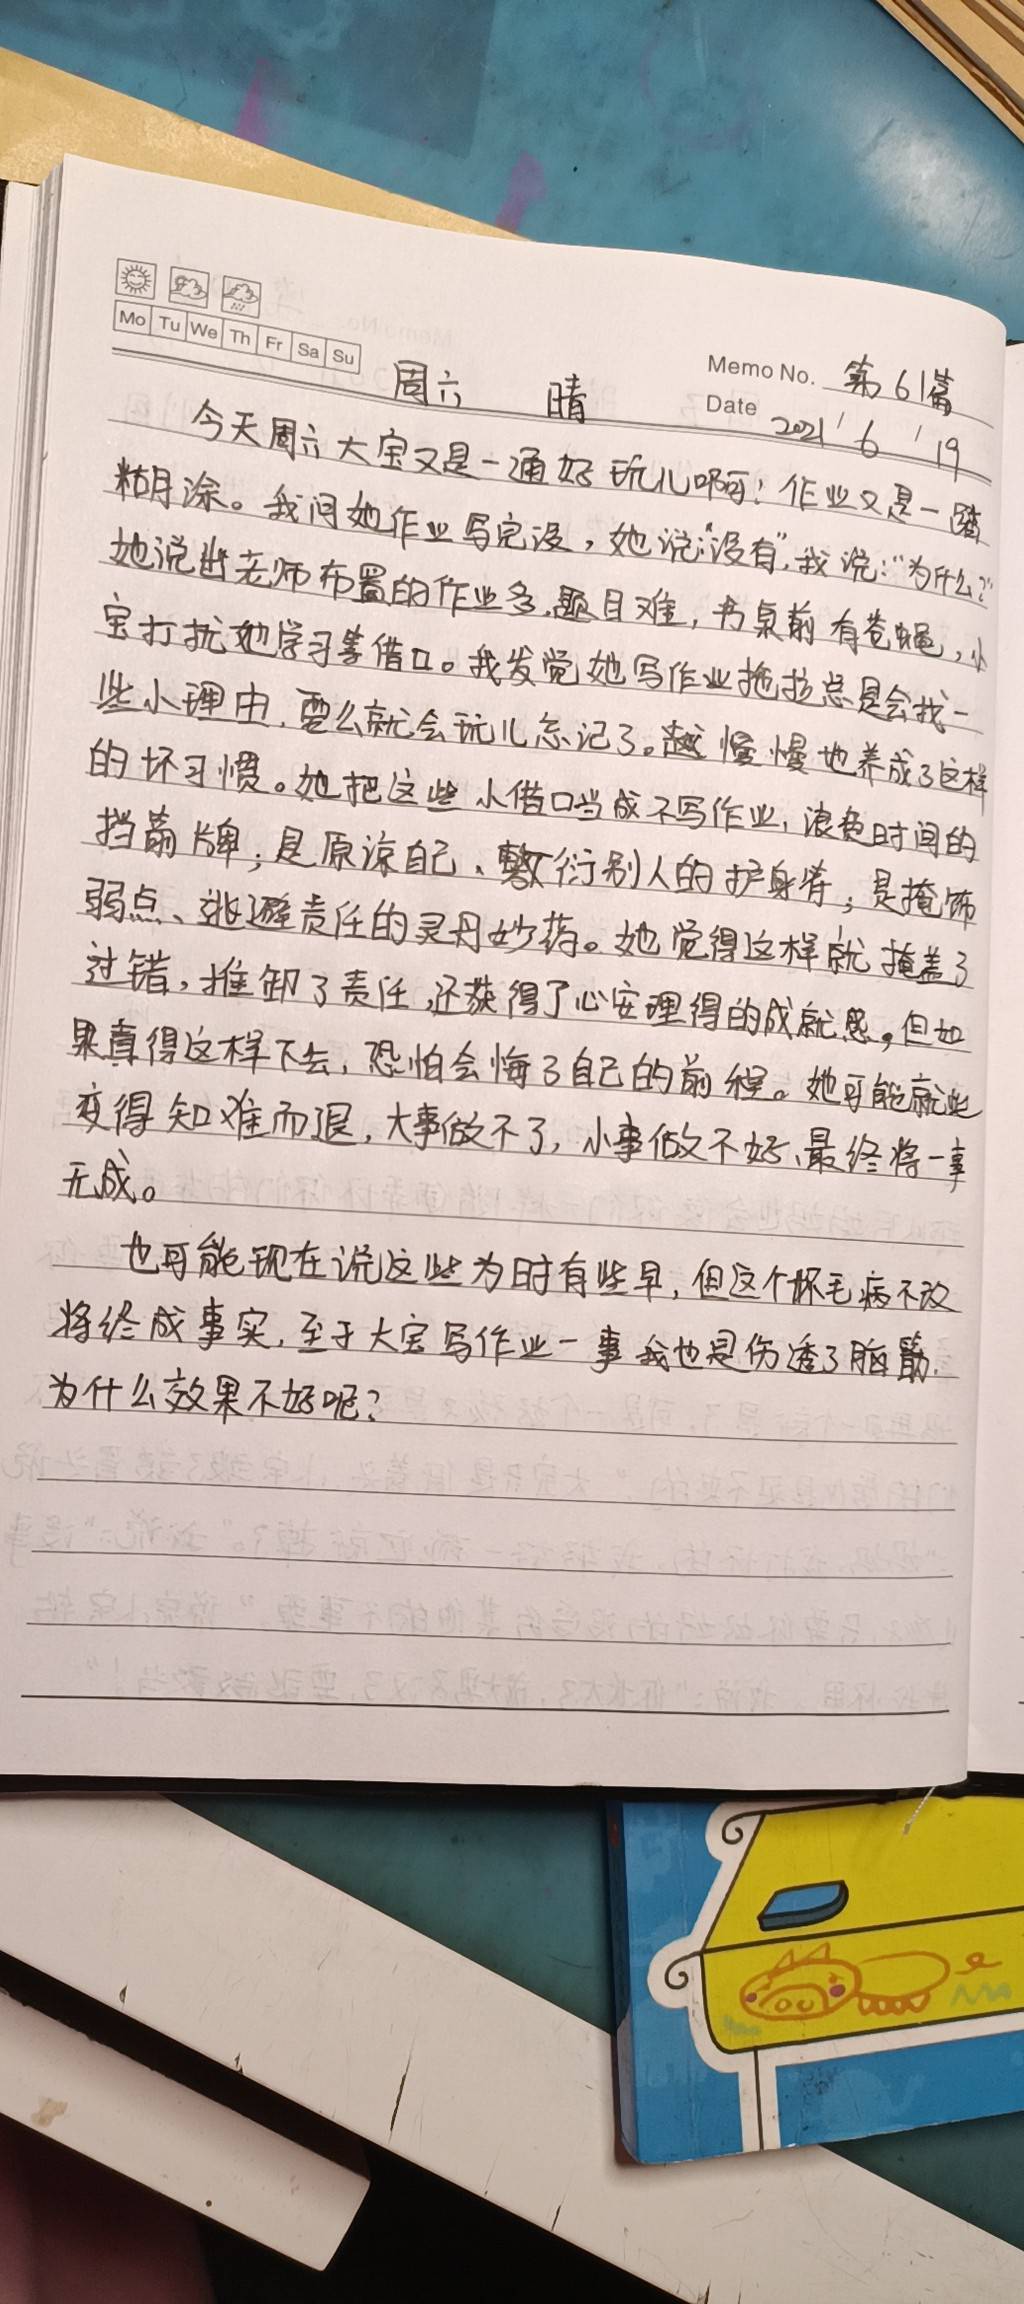 Mo Tu We Th Fr Sa Su
Memo No. 第61篇
周六 晴
Date 2021 ' 6 ' 19
今天周六大宝又是一通好玩儿啊!作业又是一踏
糊涂。我问她作业写完没,她说:"没有",我说:"为什么?"
她说出老师布置的作业多,题目难,书桌前有苍蝇,小
宝打扰她学习等借口。我发觉她写作业拖拉总是会找一
些小理由,要么就会玩儿忘记了。越慢慢地养成了这样
的坏习惯。她把这些小借口当成不写作业,浪费时间的
挡箭牌;是原谅自己、敷衍别人的护身符;是掩饰
弱点、逃避责任的灵丹妙药。她觉得这样就掩盖了
过错,推卸了责任,还获得了心安理得的成就感。但如
果真得这样下去,恐怕会悔了自己的前程。她可能就此
变得知难而退,大事做不了,小事做不好、最终将一事
无成。
也可能现在说这些为时有些早,但这个坏毛病不改
将终成事实,至于大宝写作业一事我也是伤透了脑筋.
为什么效果不好呢?